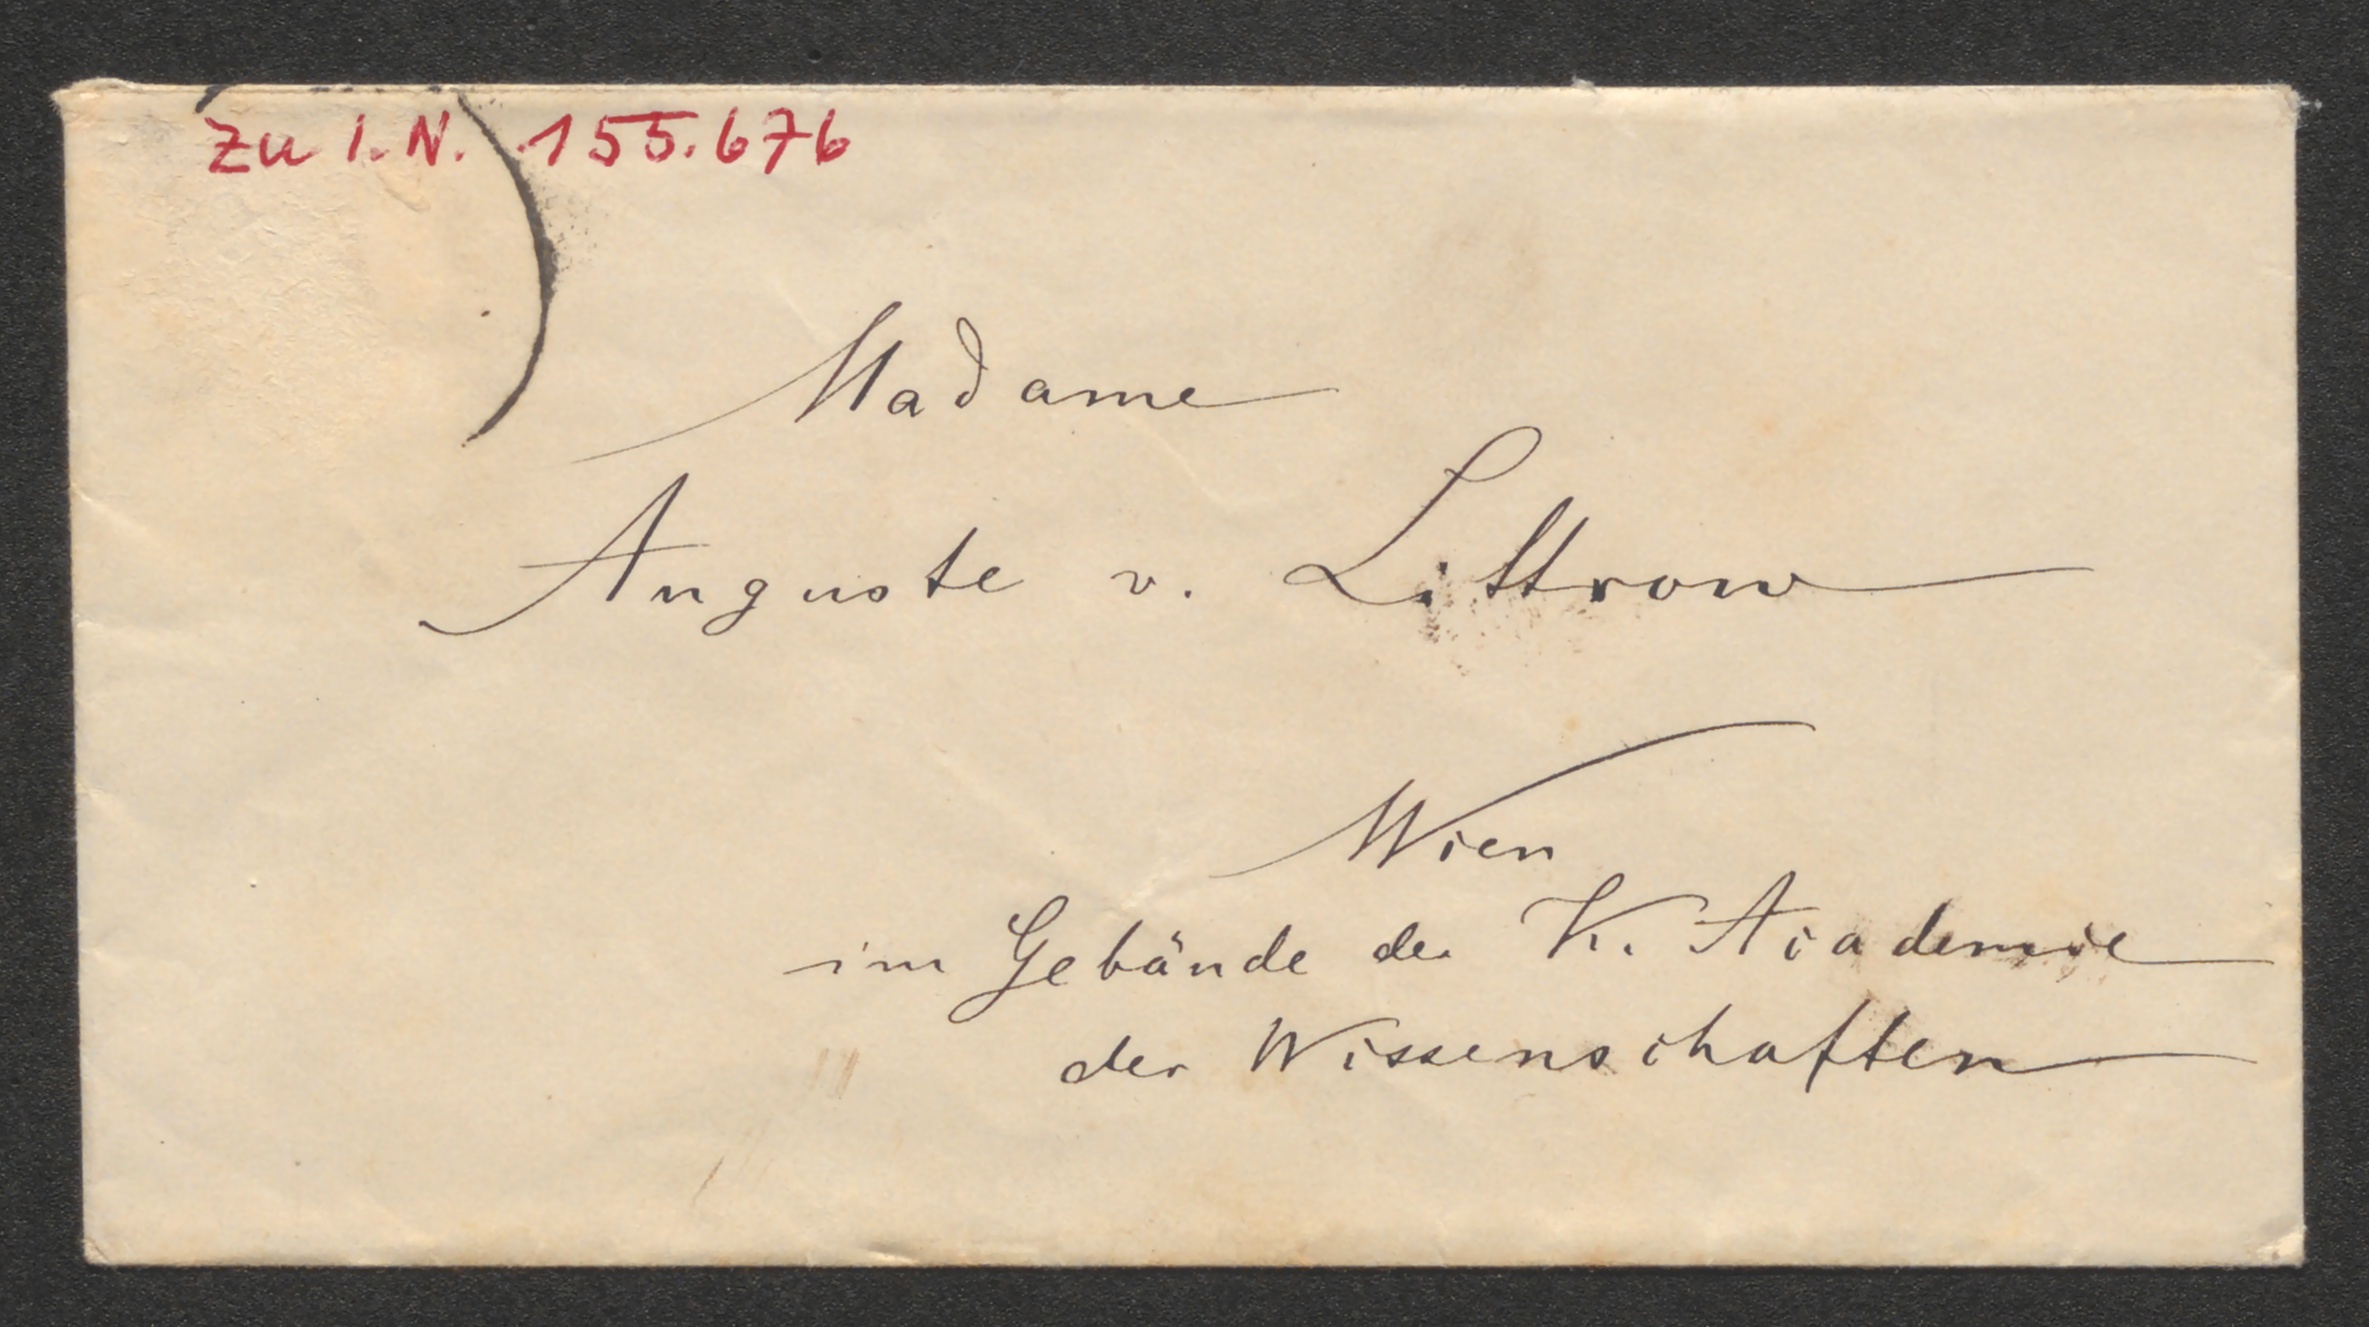 Zu I.N. 155.676
Madame
Auguste v. Littrow
Wien
im Gebäude der K. Academie
der Wissenschaften